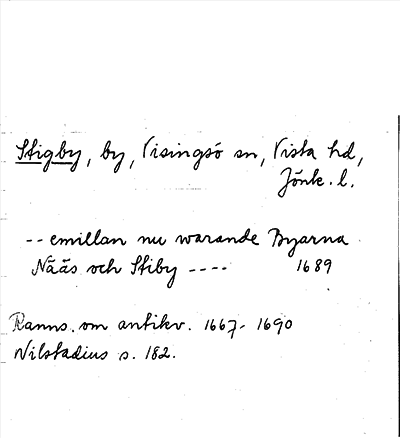 Stigby, by, Visingsö sn, Vista hd,
Jönk. l.
-- emillan nu warande Byarna
Nääs och Stiby ---- 1689
Ranns. om antikv. 1667-1690
Nilstadius s. 182.